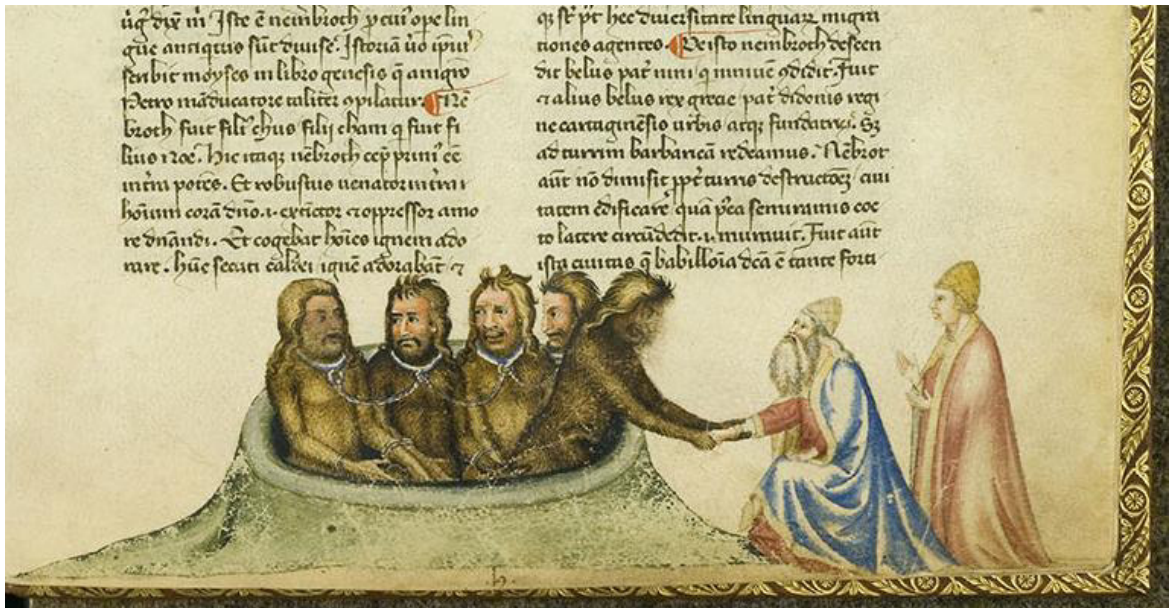 dix̄ m̄ Iste ē neinbroth ꝑ cuiꝰ ope lin
gue antiqtus sūt diuise. Istoriā ūo ipiuꝰ
scribit moyses in libro genesis q̄ a mġro
Petro māducatore taliter ꝯpilatur. ¶ Nē
broth fuit filiꝰ chus filij cham q fuit fi
lius noe. hic itaqꝫ nēbroth cep̄ primꝰ eē
in tr̄a potēs. Et robustus uenator in tr̄a ⁊
hoīum corā dn̄o .i. extīctor ⁊ oppressor amo
re dn̄andi. Et cogebat hoīes ignem ado
rare. hūc secuti caldei ignē adorabāt ⁊
hec diuersitate linguaꝝ migra
tiones agentes. ¶ De isto neinbroth descen
dit belus pat̄ nini q niniuē ꝯdidit. Fuit
⁊ alius belus rex grecie pat̄ didonis regi
ne cartaginēsis urbis atqꝫ fundatrīcis. Sꝫ
ad turrim barbaricā redeamus. Nēbrot
aūt nō dimisit ꝓpt̄ turris destructōeꝫ ciui
tatem edificare quā p̄ea semiramis coc
to latere circūdedit .i. murauit. Fuit aūt
ista ciuitas q̄ babilloīa dc̄a ē tante forti
.h.